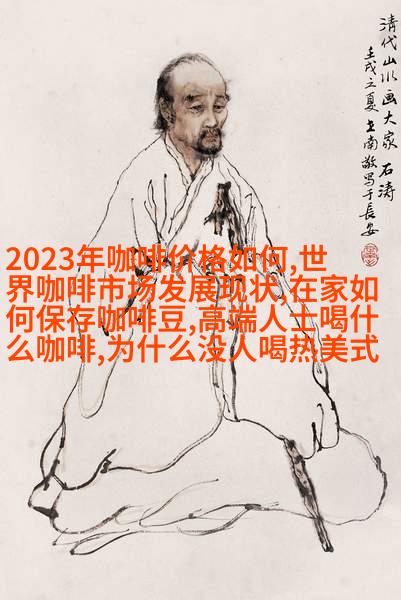 清代山水画大家 石涛
壬戌之夏 王南敬写于長安
2023年咖啡价格如何,世
界咖啡市场发展现状,在家如
何保存咖啡豆,高端人士喝什
么咖啡,为什么没人喝热美式